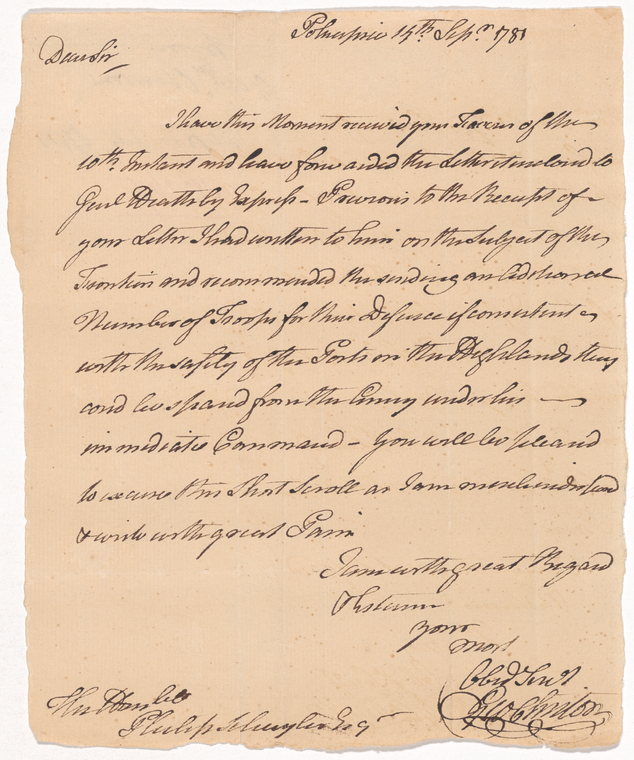 Pokeepsie 15th Sepr. 1781
Dear Sir
I have this Moment received your Favour of the
10th. Instant and have forwarded the Letter enclosed to
Genl Heath by Express - Previous to the Receipt of
your Letter I had written to him on the Subject of the
Frontiers and recommended the sending an Additional
Number of Troops for their Defence if consistent
with the safety of the Posts in the Highlands they
coud be spared from the Army under his
immediate Command - You will be pleased
to excuse this Short Scroll as I am much indisposed
& write with great Pain
I am with great Regard
& Esteem
Your
Most
Obedt Servt
Geo Clinton
The Honble
Philip Schuyler Esqr